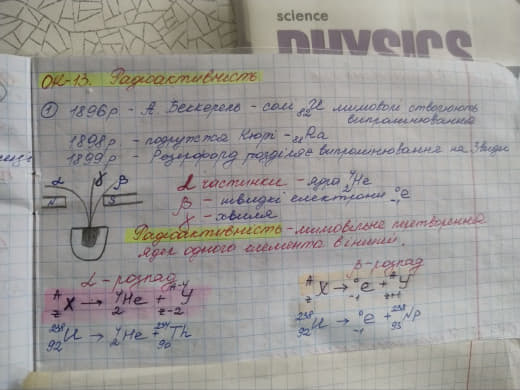 science
PHYSICS
ОК-13. Радіоактивність
① 1896р. - А. Беккерель - солі ₈₂U мимоволі створюють
випромінювання
1898р. - подружжя Кюрі - ₈₈Ra
1899р - Резерфорд розділяє випромінювання на 3 види
α γ β
N S
α частинки - ядра ⁴₂He
β - швидкі електрони ⁰₋₁e
γ - хвиля
Радіоактивність - мимовільне перетворення
ядер одного елемента в інший.
α - розпад
ᴬ_Z X → ⁴₂He + ᴬ⁻⁴_Z₋₂ Y
²³⁸₉₂U → ⁴₂He + ²³⁴₉₀Th
β - розпад
ᴬ_Z X → ⁰₋₁e + ᴬ_Z₊₁ Y
²³⁸₉₂U → ⁰₋₁e + ²³⁸₉₃Np